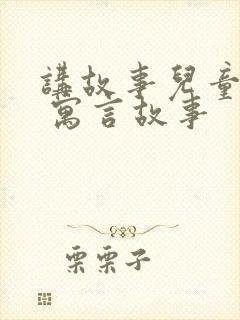 講故事兒童
寓言故事
栗栗子